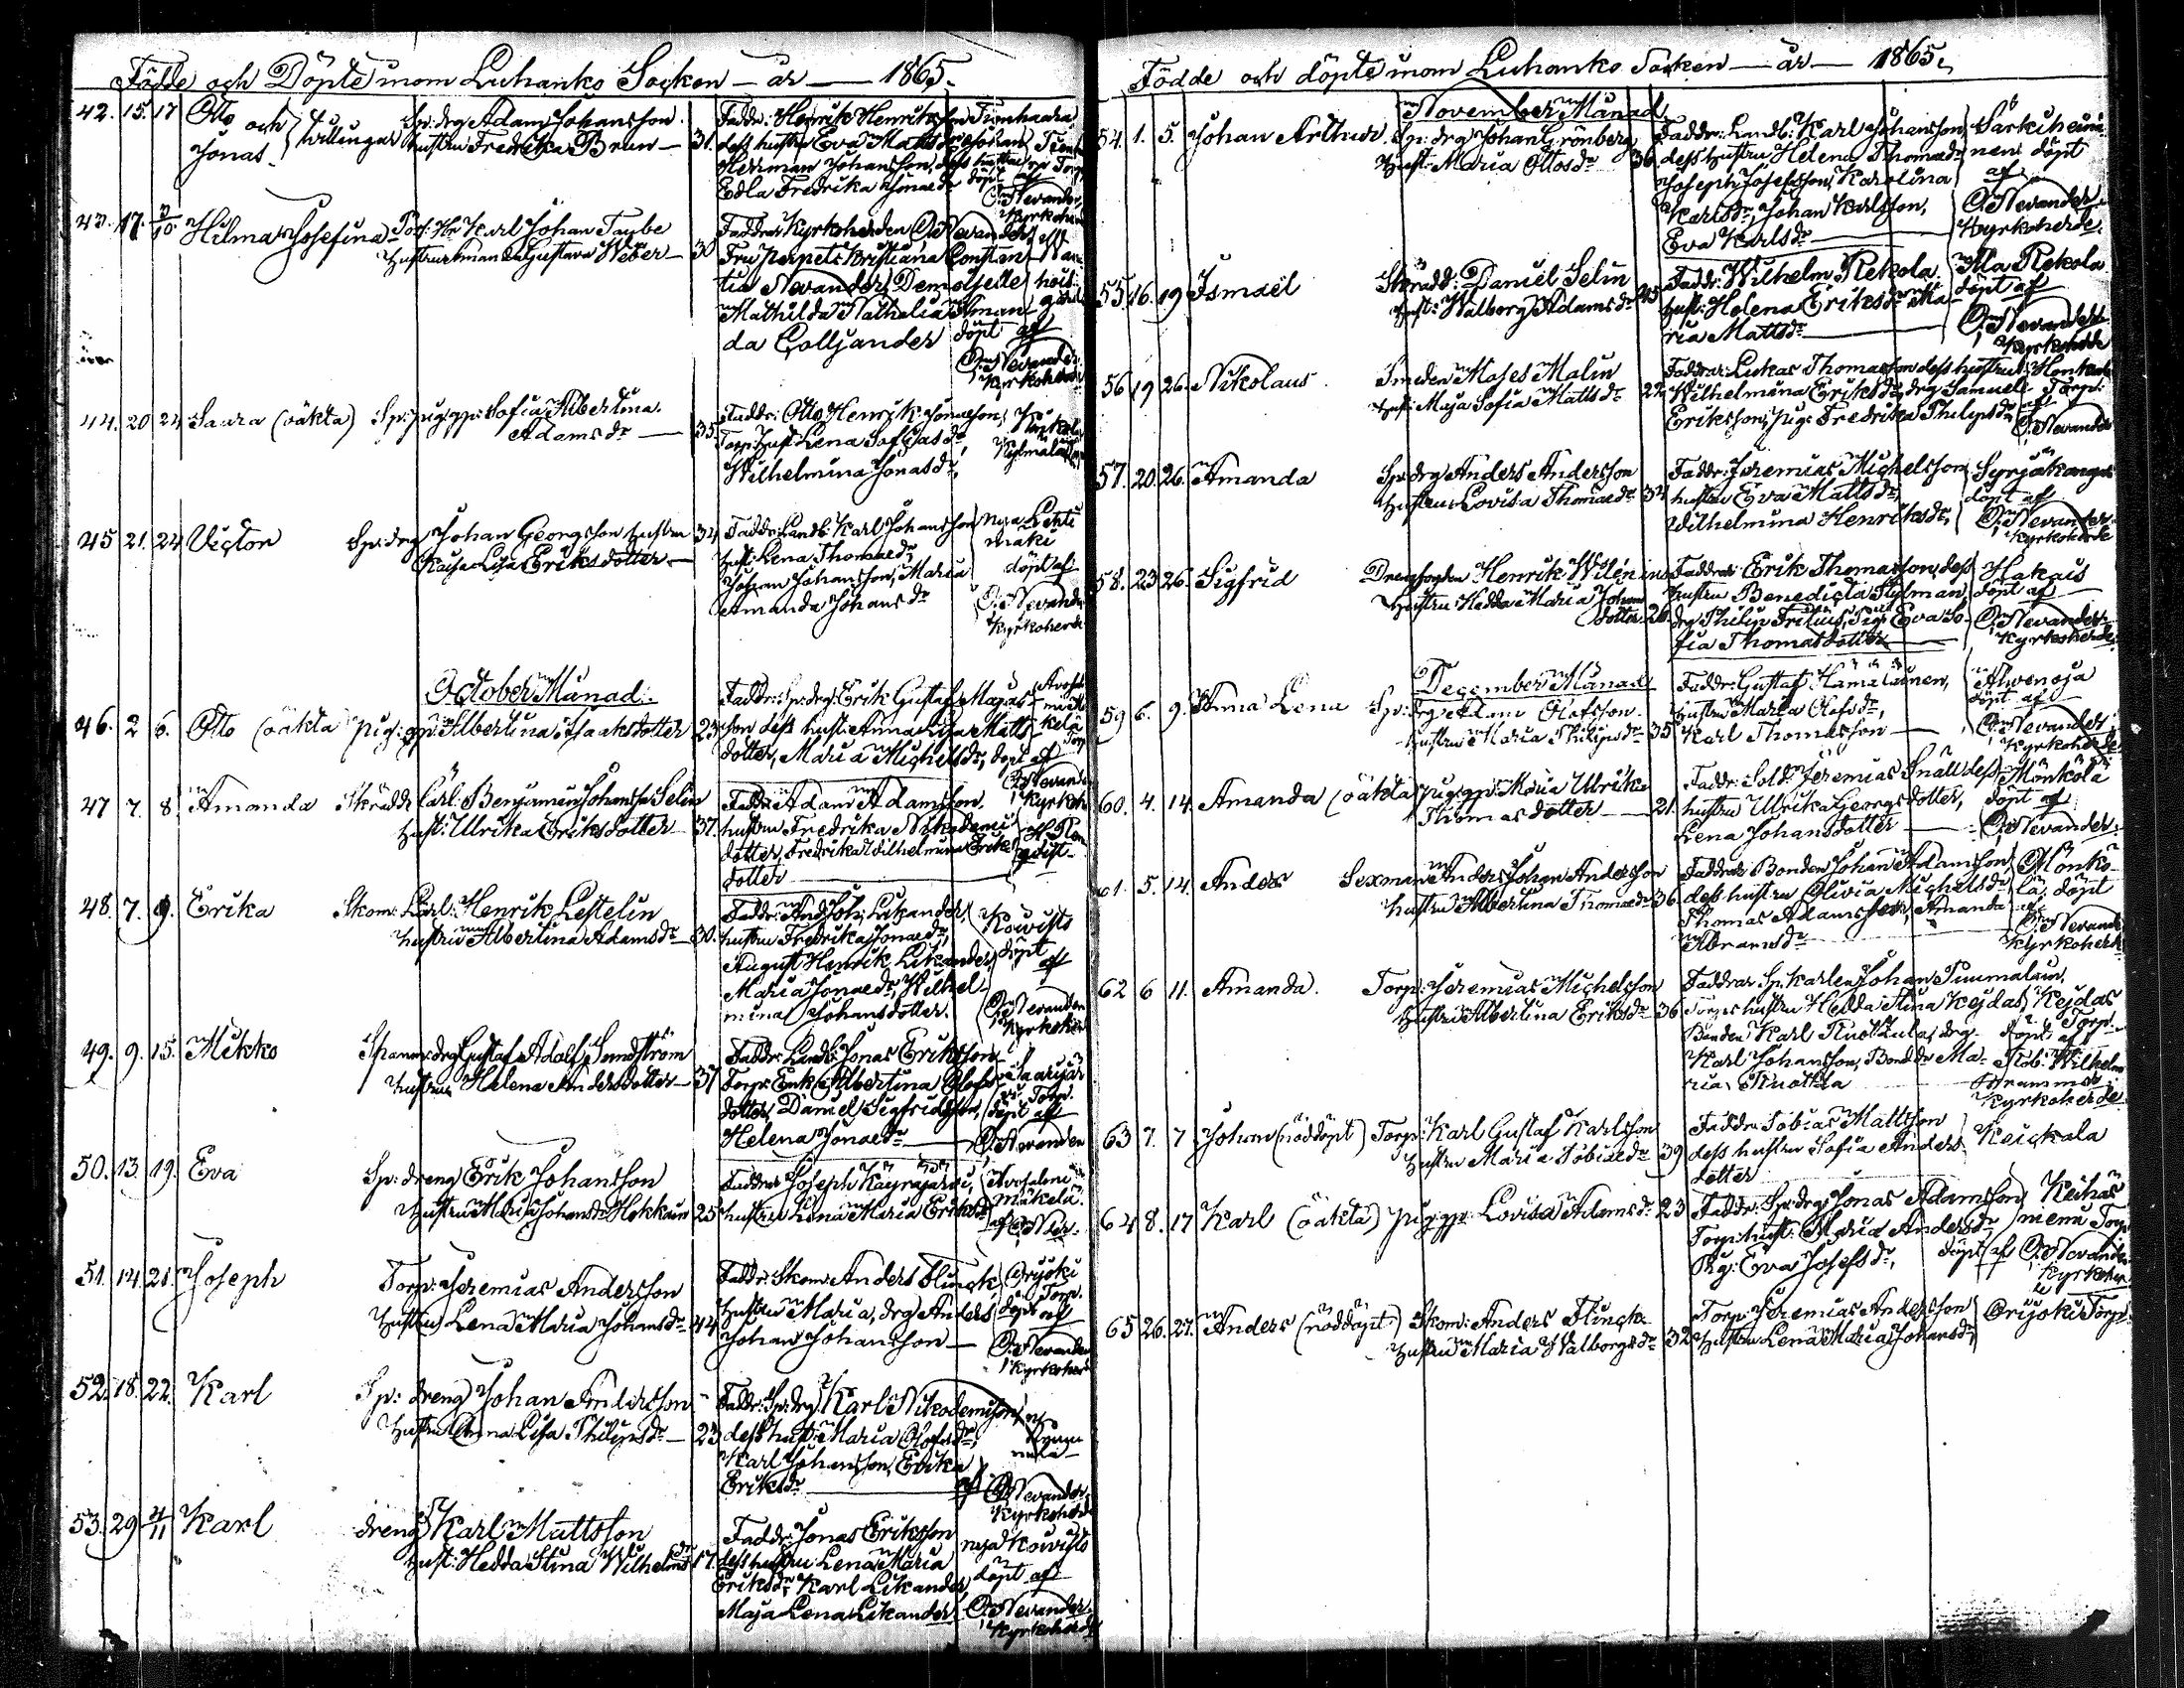 Födde och Döpte inom Luhanko Socken — år — 1865.
42. 15. 17 Otto och Jonas } tvillingar Sp: drg Adam Johansson
hustru Fredrika Brun — 31.
Faddr: Henrik Henriksson
dess hustru Eva Mattsdr
Herman Johansson, dess hustru
Edla Fredrika Jonaedr döpt af
O. Nevander
Kyrkoherde
43. 17. 2/10 Hilma Josefina Karl Johan Taube
Hustru Amanda Gustava Weber — 30
Faddrar Kyrkoherden O. Nevander
Fru Kristiana Constan-
tia Nevander, Demoiselle
Mathilda Nathalia Aman-
da Colljander döpt af
O. Nevander
Kyrkoherde
44. 20 24 Saara (oäkta) Sp: pig: Sofia Albertina
Adamsdr — 35
Faddr: Otto Henrik Jonasson,
Torp: Hust: Lena
Wilhelmina Jonasdr,
45 21. 24 Victor Sp: drg Johan Georgsson hustru 34
Kajsa Lisa Eriksdotter —
Faddr: Landb: Karl Johansson
hust: Lena Thomaedr,
Johan Johansson, Maria
Amanda Johansdr
döpt af
O. Nevander
Kyrkoherde
October Månad.
46. 2 6. Otto (oäkta) pig: Albertina Isaaksdotter 23
Faddr: Sp: drg: Erik Gustaf
son dess hust: Anna Lisa Matts-
dotter, Maria Michelsdr, döpt af
O. Nevander
Kyrkoh
47 7. 8. Amanda Skrädd: Carl Benjamin Johansson Selin
Hust: Ulrika Eriksdotter — 37.
Faddr: Adam Adamsson,
hustru Fredrika Nikodemi
dotter, Fredrika Wilhelmina Eriks
dotter
48. 7. 9. Erika Skom: Henrik Lestelin
hustru Albertina Adamsdr — 30.
Faddr: And: Joh: Likander,
hustru Fredrika Jonaedr,
August Henrik Likander,
Maria Jonaedr, Wilhel-
mina Johansdotter.
Kowisto
döpt
af
O. Nevander
Kyrkoher
49. 9. 15. Mikko Gustaf Adolf Sandström
hustru Helena Andersdotter — 37
Faddr: Landb: Jonas Eriksson
Torp: Enk: Albertina Olofs
dotter, Daniel Sigfridsson,
Helena Jonaedr —
Torp.
döpt af
O. Nevander
50. 13. 19. Eva Sp: dreng Erik Johansson
Hustru Maria Johansdr 25
Faddrar Joseph
hustru Lena Maria Eriksdr
51. 14. 21. Joseph Torp: Jeremias Andersson
Hustru Lena Maria Johansdr 44
Faddr: Skom: Anders Flinck
hustru Maria, drg Anders
Johan Johansson —
Orijoki
Torp.
döpt af
O. Nevander
Kyrkoher
52. 18. 22. Karl Sp: dreng Johan Andersson
hustru Anna Lisa Philipsdr — 23
Faddr: Sp: drg: Karl Nikodemisson
dess hust: Maria Olofsdr,
Karl Johansson, Erika
Eriksdr — af
O. Nevander
Kyrkoherde
53. 29 4/11 Karl dreng Karl Mattsson
hust: Hedda Stina Wilhelmsdr 17.
Faddr: Jonas Eriksson
dess hustru Lena Maria
Eriksdr, Karl Likander,
Maja Lena Likander
nya Kowisto
döpt af
O. Nevander
Kyrkoherde
Födde och döpte inom Luhanko Socken — år — 1865.
November Månad
54. 1. 5. Johan Arthur. Sp: drg Johan Grönberg
Hust: Maria Ottosdr 36
Faddr: Landb: Karl Johansson,
dess hustru Helena Thomaedr
Joseph Josefsson, Karolina
Karlsdr, Johan Karlsson,
Eva Karlsdr —
Särkihei-
nen döpt
af
O. Nevander
Kyrkoherde.
55. 16. 19 Ismaël Skrädd: Daniel Selin
hust: Walborg Adamsdr 45
Faddr: Wilhelm Rekola
hust: Helena Eriksdr Ma-
ria Mattsdr —
Ala Rekola
döpt af
O. Nevander
Kyrkoherde
56 19 26. Nikolaus. Smeden Moses Malin
Hust: Maja Sofia Mattsdr 22
Faddrar: Lukas Thomasson dess hustru
Wilhelmina Eriksdr, drg Samuel
Eriksson, pig: Fredrika Philipsdr
Torp:
af
O. Nevander
57. 20. 26. Amanda Sp: drg Anders Andersson
Hustru Lovisa Thomaedr 34
Faddr: Jeremias Michelsson
hustru Eva Mattsdr,
Wilhelmina Henriksdr,
Syrjäkangas
döpt af
O. Nevander
Kyrkoherde
58. 23 26. Sigfrid Drengfogden Henrik Wilén
Hustru Hedda Maria Johans
dotter 26.
Faddrar: Erik Thomasson, dess
hustru Benedicta
drg Philip Pig: Eva So-
fia Thomasdotter
Hakais
döpt af
O. Nevander
Kyrkoherde
December Månad
59 6. 9. Anna Lena Sp: drg Adam Olofsson
hustru Maria Philipsdr 35
Faddr: Gustaf Hämäläinen,
hustru Maria Olofsdr,
Karl Thomasson —
döpt af
O. Nevander
Kyrkoherde
60. 4. 14. Amanda (oäkta) pig: Maria Ulrika
Thomasdotter — 21.
Faddr: Sold: Jeremias Snäll dess
hustru Ulrika Georgsdotter,
Lena Johansdotter —
Mönkölä
döpt af
O. Nevander.
61. 5. 14. Anders Sexman Anders Johan Andersson
hustru Albertina Thomaedr 36
Faddrar Bonden Johan Adamsson,
dess hustru Olivia Michelsdr,
Thomas Adamsson, Amanda
Abramsdr
Mönkö-
lä, döpt
af
O. Nevander
Kyrkoherde
62 6 11. Amanda. Torp: Jeremias Michelsson
hustru Albertina Eriksdr 36
Faddrar Sp. karlen Johan
Torp: hustru Hedda Stina Kejdas,
Bonden Karl drg
Karl Johansson, Bonddr Ma-
ria
Kejdas
Torp.
döpt af
Wilhelm
Kyrkoherde
63 7. 7 Johan (nöddöpt) Torp: Karl Gustaf Karlsson
Hustru Maria Tobiaedr 39
Faddr: Tobias Mattsson
dess hustru Sofia Anders-
dotter
64 8. 17 Karl (oäkta) pig: Lovisa Adamsdr 23
Faddr: Sp: drg Jonas Adamsson
Torp: hust: Maria Andersdr
Pig: Eva Josefsdr, döpt af O. Nevander
Kyrkoher
65 26. 27. Anders (nöddöpt) Skom: Anders Flinck
hustru Maria Walborgsdr 32
Torp: Jeremias Andersson
hustru Lena Maria Johansdr,
Orijoki Torp: